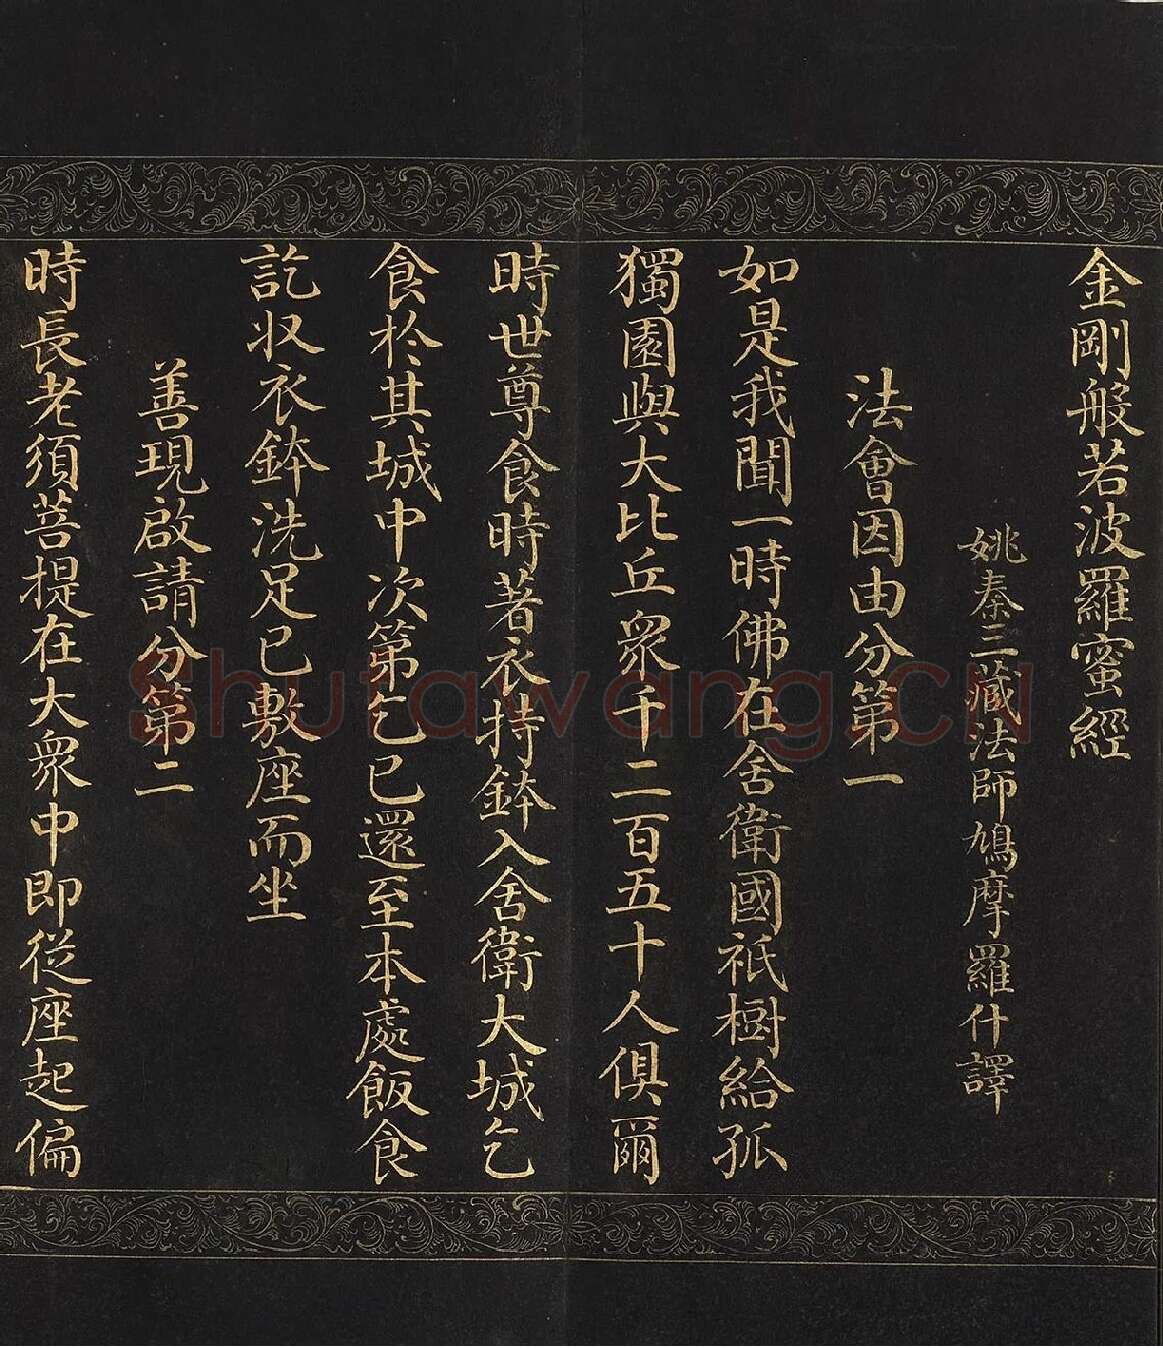 金剛般若波羅蜜經
姚秦三藏法師鳩摩羅什譯
法會因由分第一
如是我聞一時佛在舍衛國祇樹給孤
獨園與大比丘眾千二百五十人俱爾
時世尊食時著衣持鉢入舍衛大城乞
食於其城中次第乞已還至本處飯食
訖収衣鉢洗足已敷座而坐
善現啟請分第二
時長老須菩提在大眾中即從座起偏
Shufawang.CN